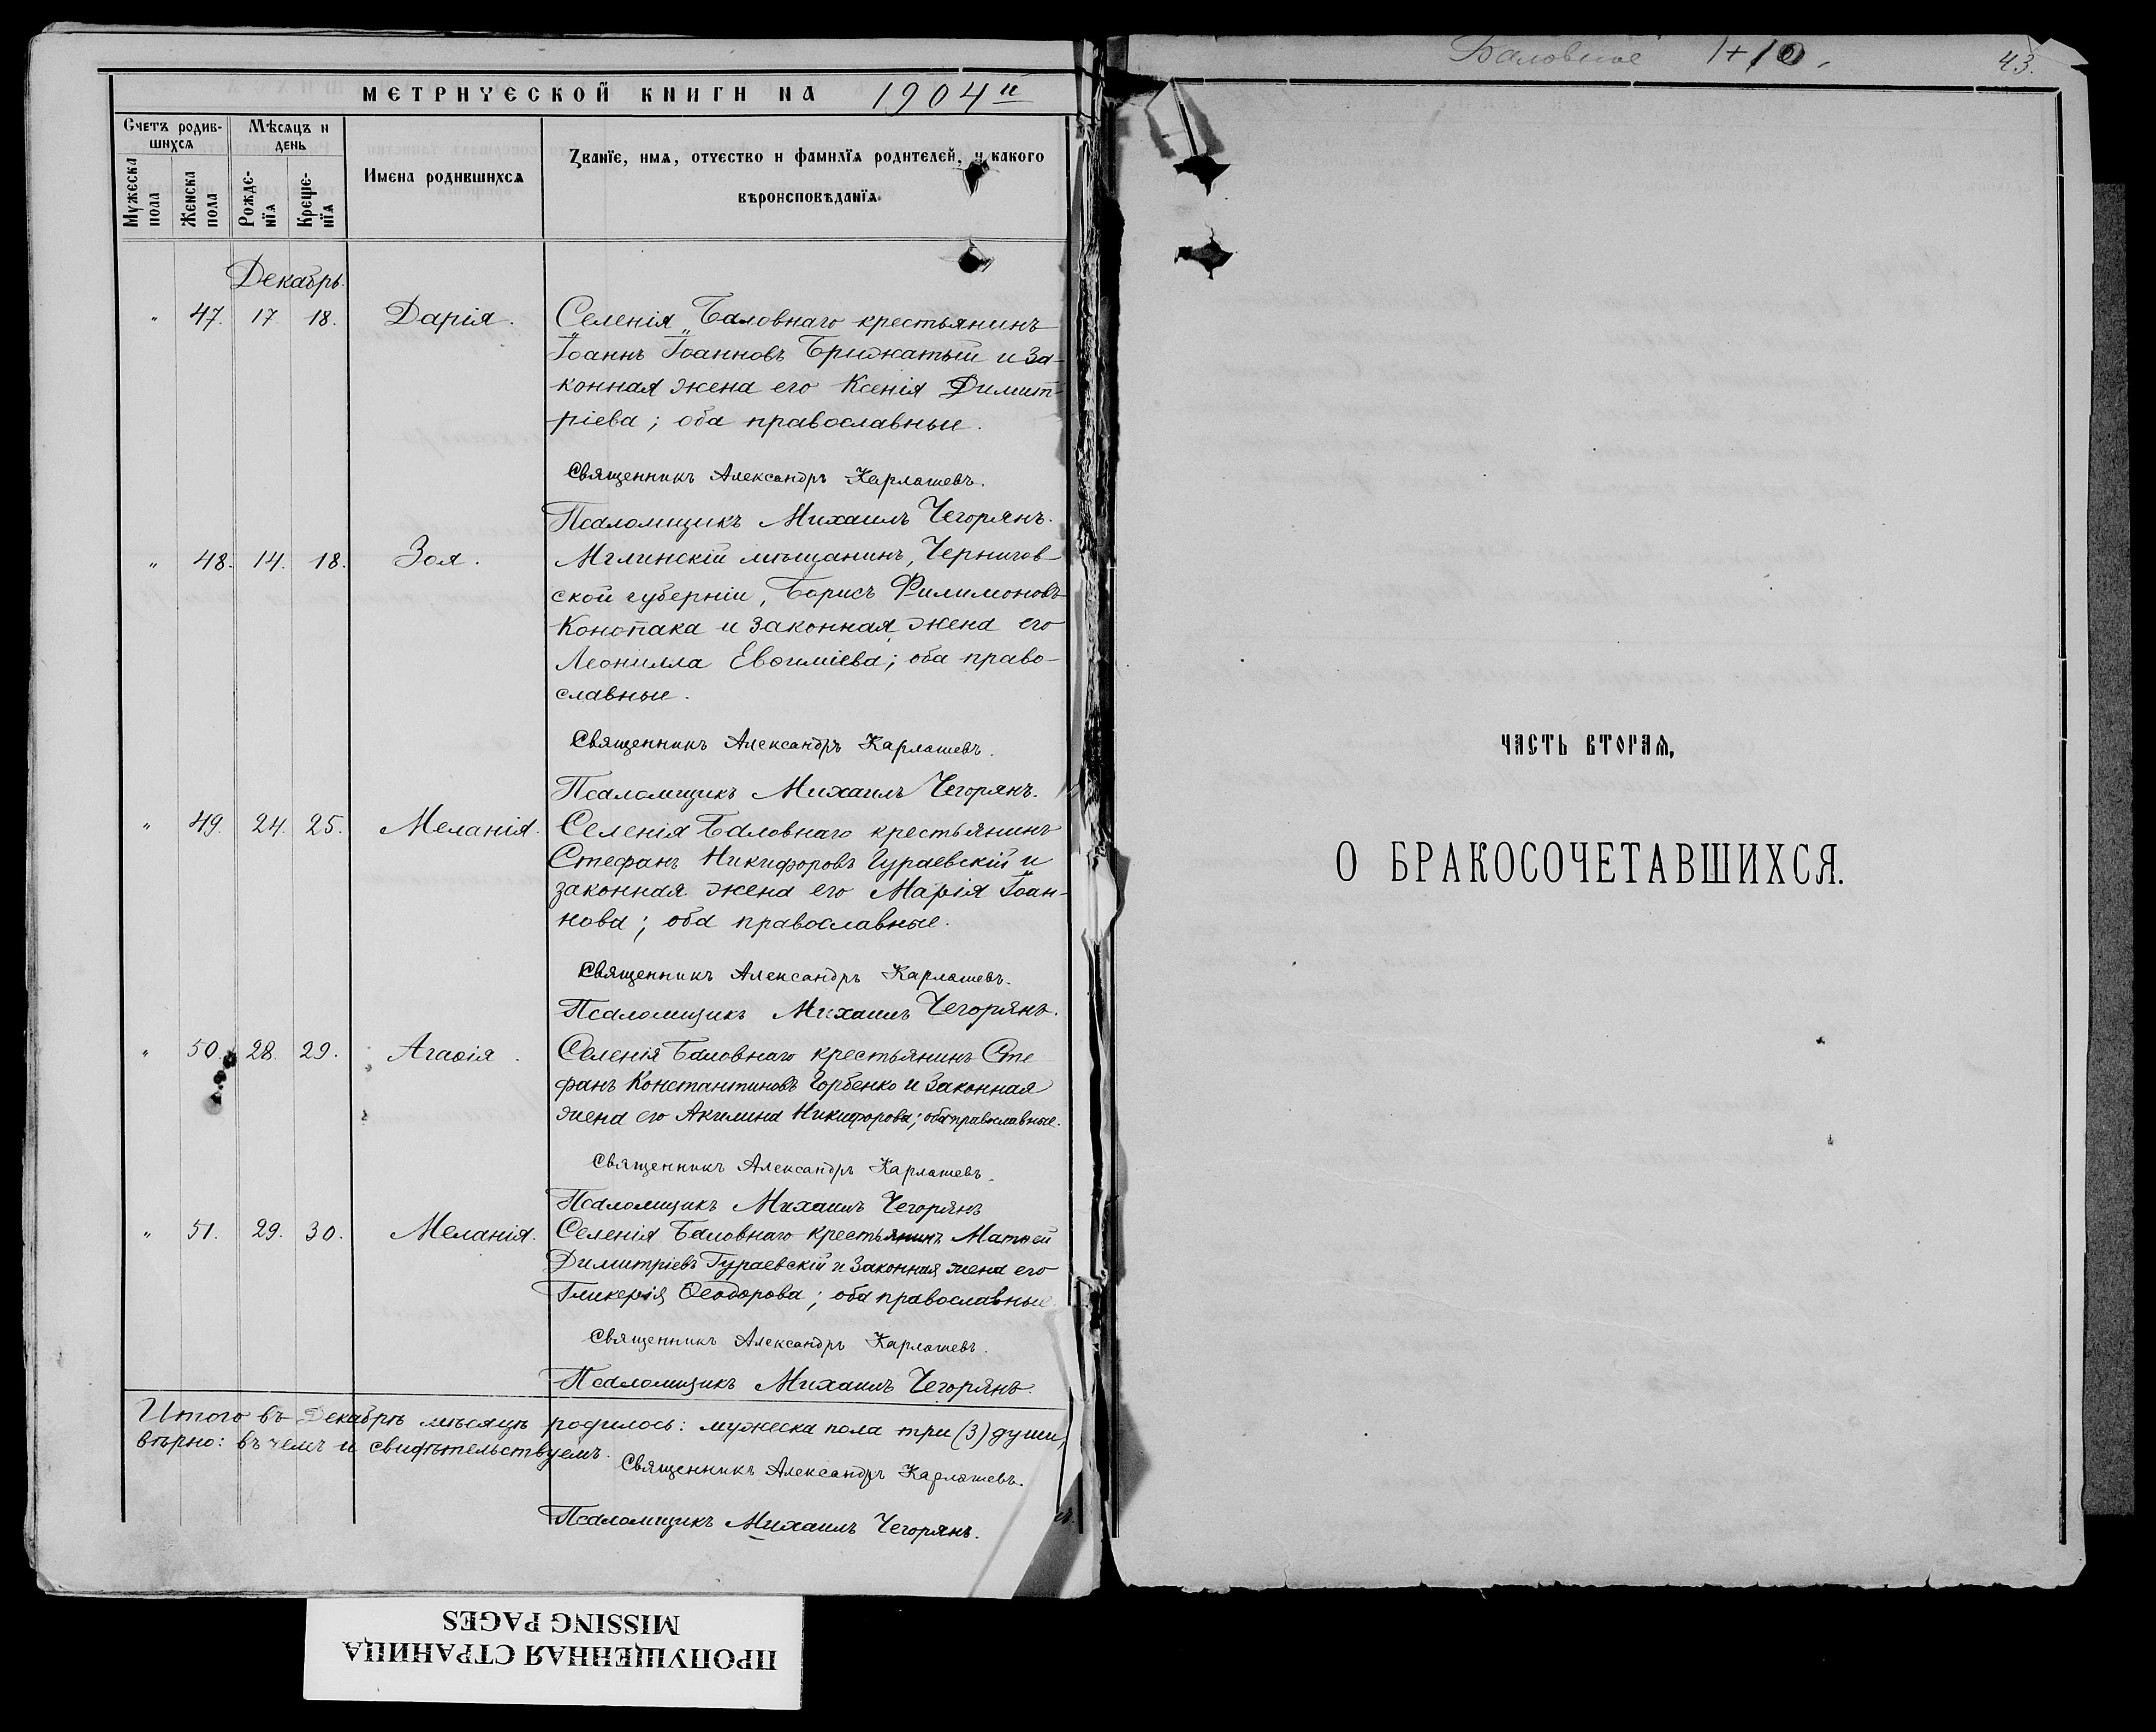 МЕТРИЧЕСКОЙ КНИГИ НА 1904й
Счетъ родив-
шихся
Мѣсяцъ и
день
Мужеска
пола
Женска
пола
Рожде-
нїя
Креще-
нїя
Имена родившихся
Званїе, имя, отчество и фамилїя родителей, и какого
вѣроисповѣданїя.
Декабрь.
" 47. 17 18. Дарія.
Селенія Баловнаго крестьянинъ
Іоаннъ Іоанновъ Брижатый и за-
конная жена его Ксенія Димит-
ріева; оба православные.
Священникъ Александръ Карлашевъ.
Псаломщикъ Михаилъ Чегорянъ.
" 48. 14. 18. Зоя.
Мглинскій мѣщанинъ, Чернигов-
ской губерніи, Борисъ Филимоновъ
Конопака и законная жена его
Леонилла Евѳиміева; оба право-
славные.
Священникъ Александръ Карлашевъ.
Псаломщикъ Михаилъ Чегорянъ.
" 49. 24. 25. Меланія.
Селенія Баловнаго крестьянинъ
Стефанъ Никифоровъ Гураевскій и
законная жена его Марія Іоан-
нова; оба православные.
Священникъ Александръ Карлашевъ.
Псаломщикъ Михаилъ Чегорянъ.
" 50. 28. 29. Агаѳія.
Селенія Баловнаго крестьянинъ Сте
фанъ Константиновъ Горбенко и законная
жена его Акилина Никифорова; оба православные.
Священникъ Александръ Карлашевъ.
Псаломщикъ Михаилъ Чегорянъ
" 51. 29. 30. Меланія.
Селенія Баловнаго крестьянинъ Матѳей
Димитріевъ Гураевскій и законная жена его
Гликерія Ѳеодорова; оба православные
Священникъ Александръ Карлашевъ.
Псаломщикъ Михаилъ Чегорянъ.
Итого въ Декабрѣ мѣсяцѣ родилось: мужеска пола три (3) души,
вѣрно: въ чемъ и свидѣтельствуемъ.
Священникъ Александръ Карлашевъ.
Псаломщикъ Михаилъ Чегорянъ.
ПРОПУЩЕННАЯ СТРАНИЦА
MISSING PAGES
Баловное 1+10.
43.
ЧАСТЬ ВТОРАЯ,
О БРАКОСОЧЕТАВШИХСЯ.